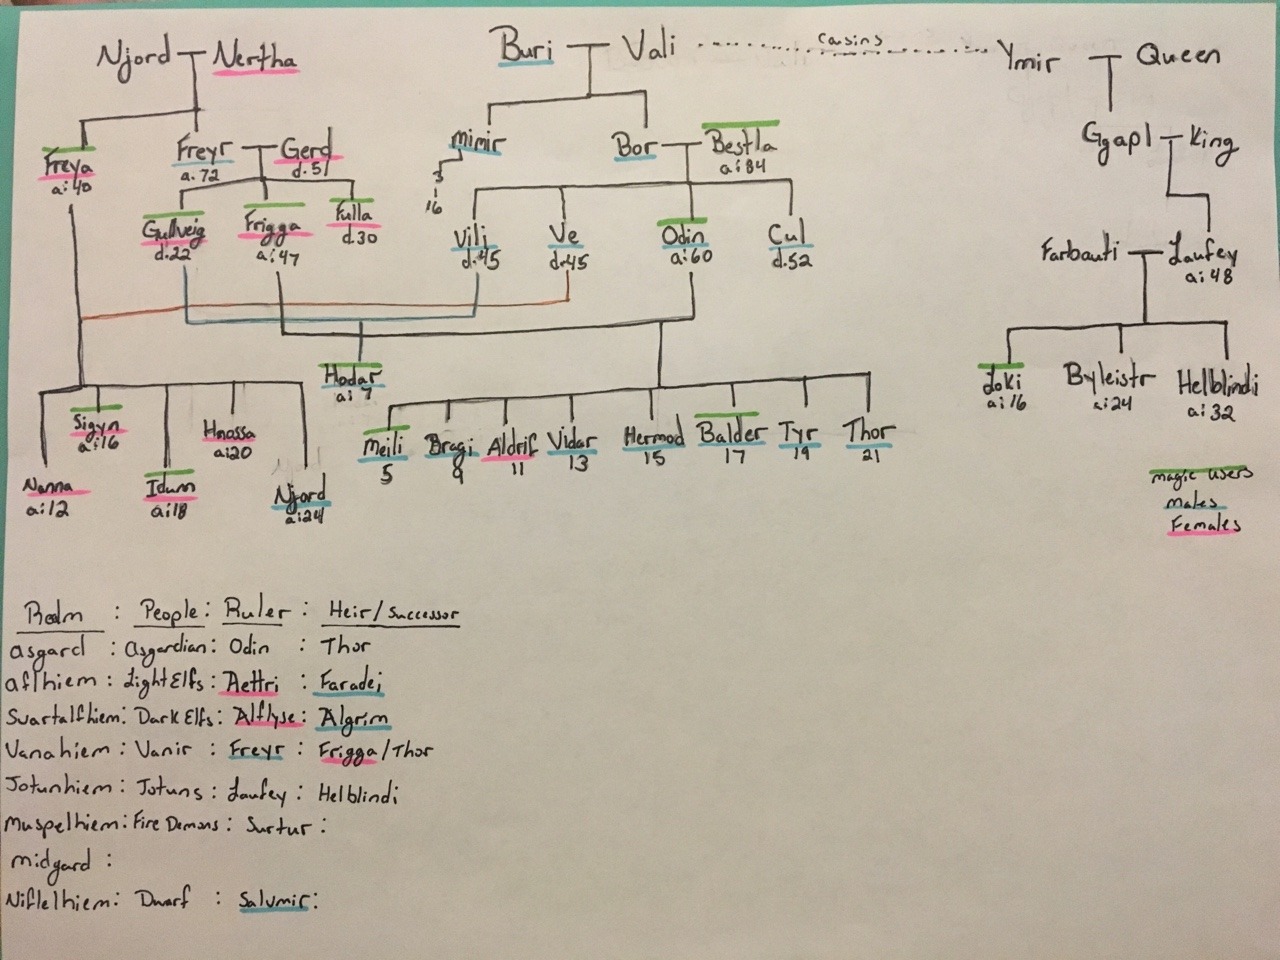 Njord Nertha Buri Vali casins Ymir Queen
Freya
a:40
Freyr
a.72
Gerd
d.51
mimir
3
16
Bor
Bestla
a:84
Ggapl King
Gullveig
d.22
Frigga
a:47
Fulla
d.30
Vili
d.45
Ve
d.45
Odin
a:60
Cul
d.52
Farbauti
Laufey
a:48
Hodar
a:7
Loki
a:16
Byleistr
a:24
Helblindi
a:32
Nanna
a:12
Sigyn
a:16
Idunn
a:18
Hnossa
a:20
Njord
a:24
Meili
5
Bragi
9
Aldrif
11
Vidar
13
Hermod
15
Balder
17
Tyr
19
Thor
21
magic users
males
Females
Realm : People : Ruler : Heir/Successor
asgard : Asgardian : Odin : Thor
aflhiem : Light Elfs : Aettri : Faradej
Svartalfhiem : Dark Elfs : Alflyse : Algrim
Vanahiem : Vanir : Freyr : Frigga/Thor
Jotunhiem : Jotuns : Laufey : Helblindi
Muspelhiem : Fire Demons : Surtur :
midgard :
Niflelhiem : Dwarf : Salvmir :